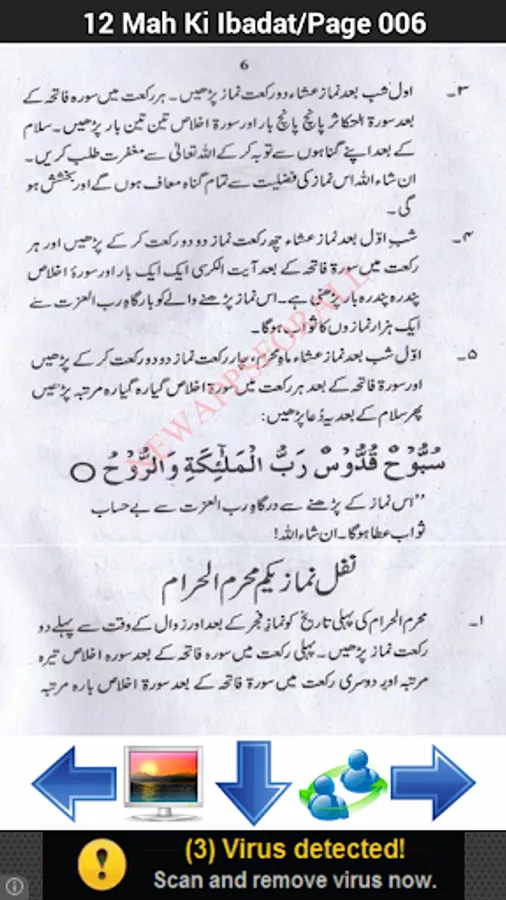 12 Mah Ki Ibadat/Page 006
6
۳۔ اول شب بعد نماز عشاء دو رکعت نماز پڑھیں۔ ہر رکعت میں سورہ فاتحہ کے
بعد سورۃ التکاثر پانچ پانچ بار اور سورۃ اخلاص تین تین بار پڑھیں۔ سلام
کے بعد اپنے گناہوں سے توبہ کر کے اللہ تعالیٰ سے مغفرت طلب کریں۔
ان شاء اللہ اس نماز کی فضیلت سے تمام گناہ معاف ہوں گے اور بخشش ہو
گی۔
۴۔ شب اوّل بعد نماز عشاء چھ رکعت نماز دو دو رکعت کر کے پڑھیں اور ہر
رکعت میں سورۃ فاتحہ کے بعد آیت الکرسی ایک ایک بار اور سورۃ اخلاص
پندرہ پندرہ بار پڑھنی ہے۔ اس نماز پڑھنے والے کو بارگاہ رب العزت سے
ایک ہزار نمازوں کا ثواب ہوگا۔
۵۔ اوّل شب بعد نماز عشاء ماہ محرم، چار رکعت نماز دو دو رکعت کر کے پڑھیں
اور سورۃ فاتحہ کے بعد ہر رکعت میں سورۃ اخلاص گیارہ گیارہ مرتبہ پڑھیں
پھر سلام کے بعد یہ دُعا پڑھیں:
سُبُّوْحٌ قُدُّوْسٌ رَبُّ الْمَلٰٓئِكَةِ وَالرُّوْحُ ○
"اس نماز کے پڑھنے سے درگاہ رب العزت سے بے حساب
ثواب عطا ہوگا۔ ان شاء اللہ!
نفل نماز یکم محرم الحرام
۱۔ محرم الحرام کی پہلی تاریخ کو نماز فجر کے بعد اور زوال کے وقت سے پہلے دو
رکعت نماز پڑھیں۔ پہلی رکعت میں سورہ فاتحہ کے بعد سورہ اخلاص تیرہ
مرتبہ اور دوسری رکعت میں سورۃ فاتحہ کے بعد سورۃ اخلاص بارہ مرتبہ
NEWAPPSFORALL
(3) Virus detected!
Scan and remove virus now.